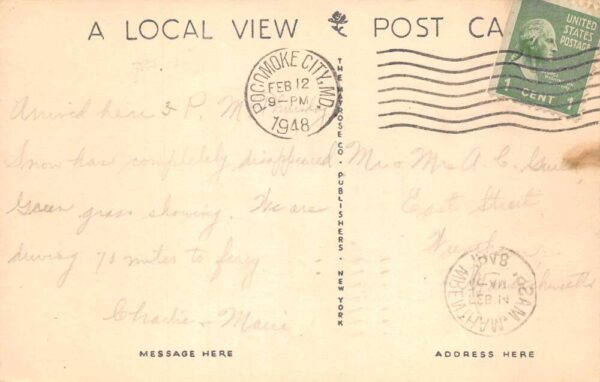 A LOCAL VIEW POST CA
UNITED
STATES
POSTAGE
1 CENT 1
POCOMOKE CITY, MD.
FEB 12
9-PM
1948
THE MAYROSE CO. PUBLISHERS. NEW YORK
Arrived here 3 P. M.
Snow has completely disappeared
Green grass showing. We are
driving 75 miles to ferry
Charlie - Marie
Mr & Mrs A. C.
East Street
MESSAGE HERE
ADDRESS HERE